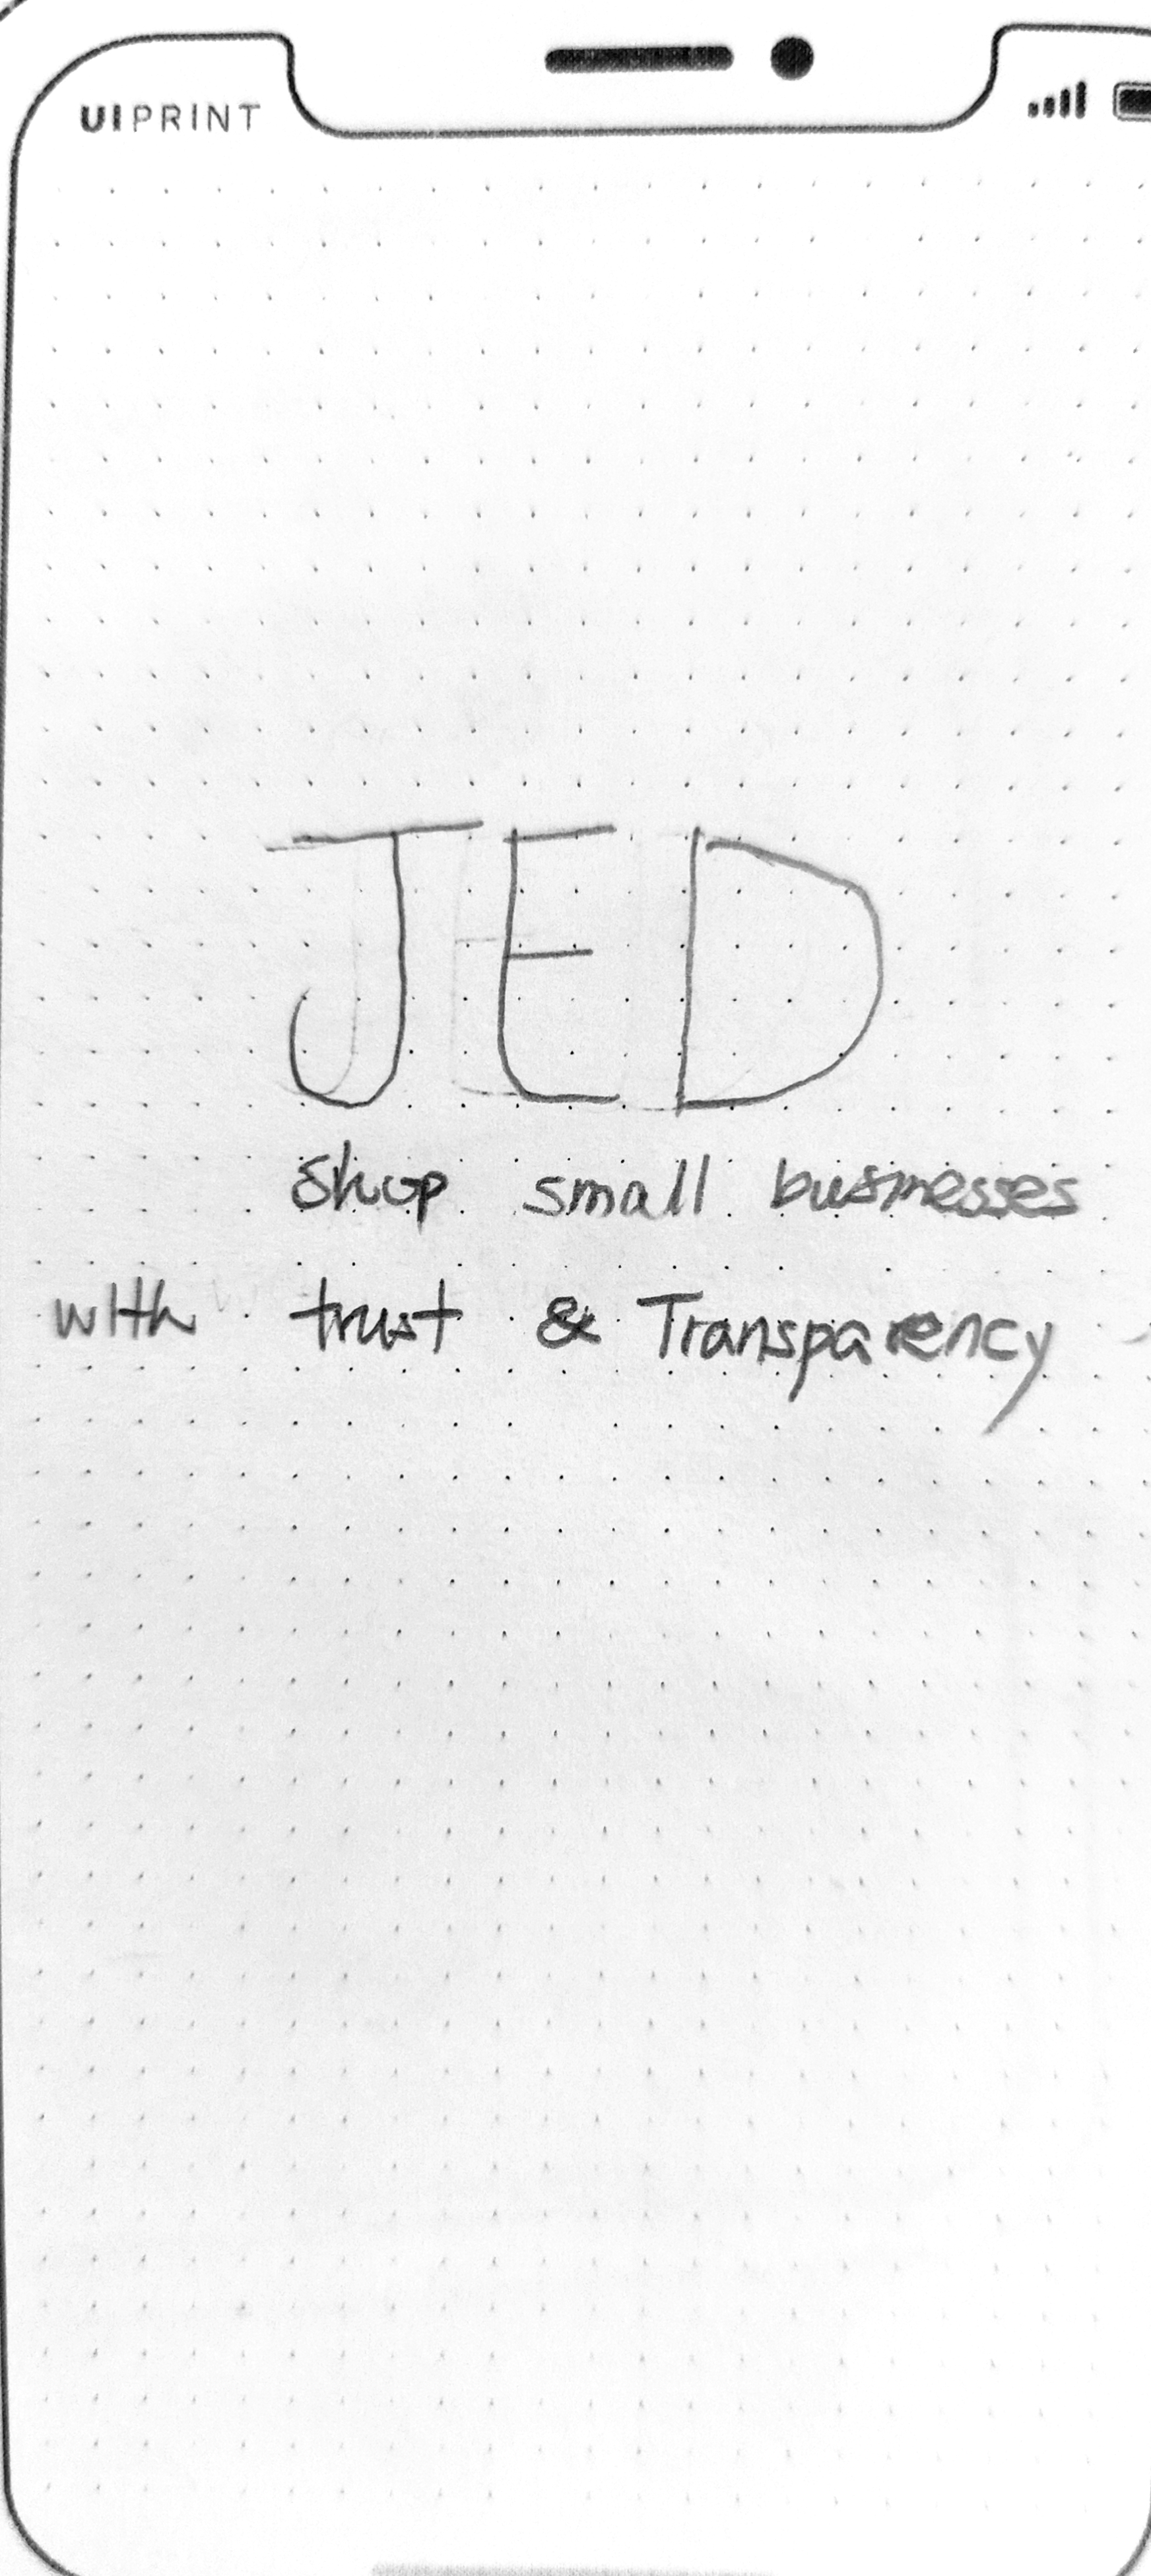 UIPRINT
JED
Shop small businesses
with trust & Transparency